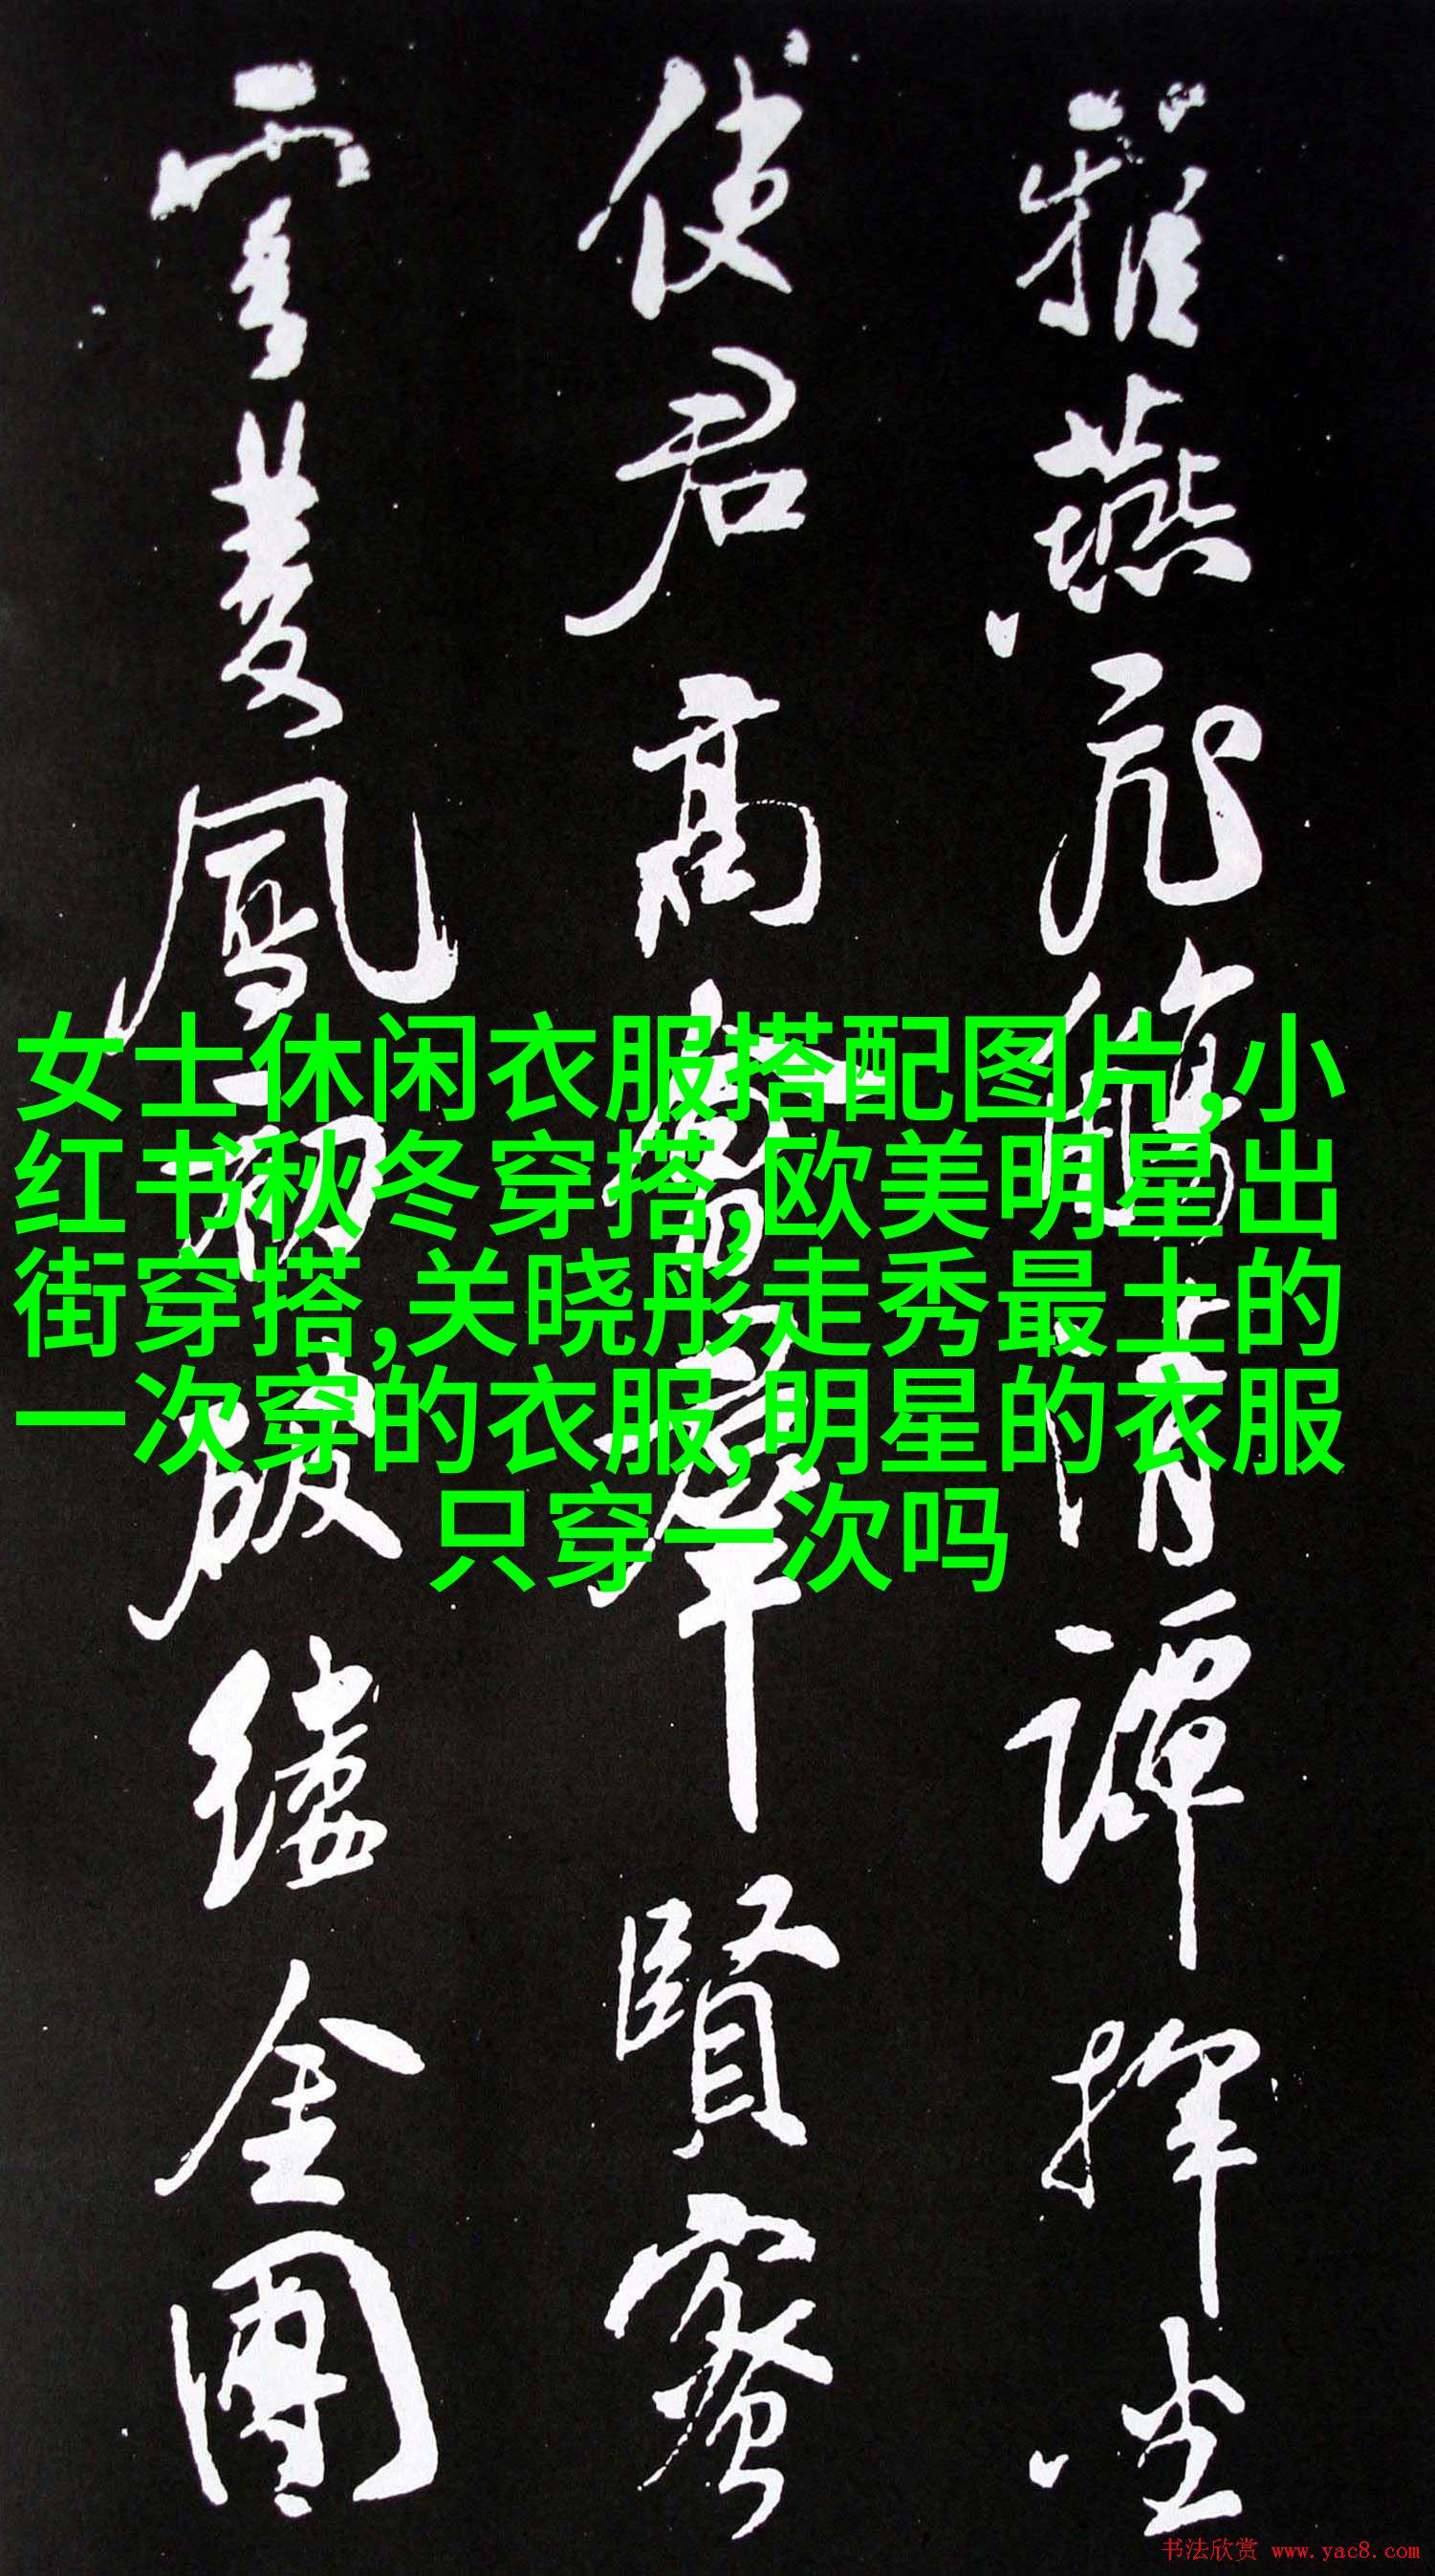 雅燕飛觴清譚揮坐
使君高會羣賢密
雲雙鳳初破縷金團
女士休闲衣服搭配图片,小
红书秋冬穿搭,欧美明星出
街穿搭,关晓彤走秀最土的
一次穿的衣服,明星的衣服
只穿一次吗
书法欣赏 www.yac8.com